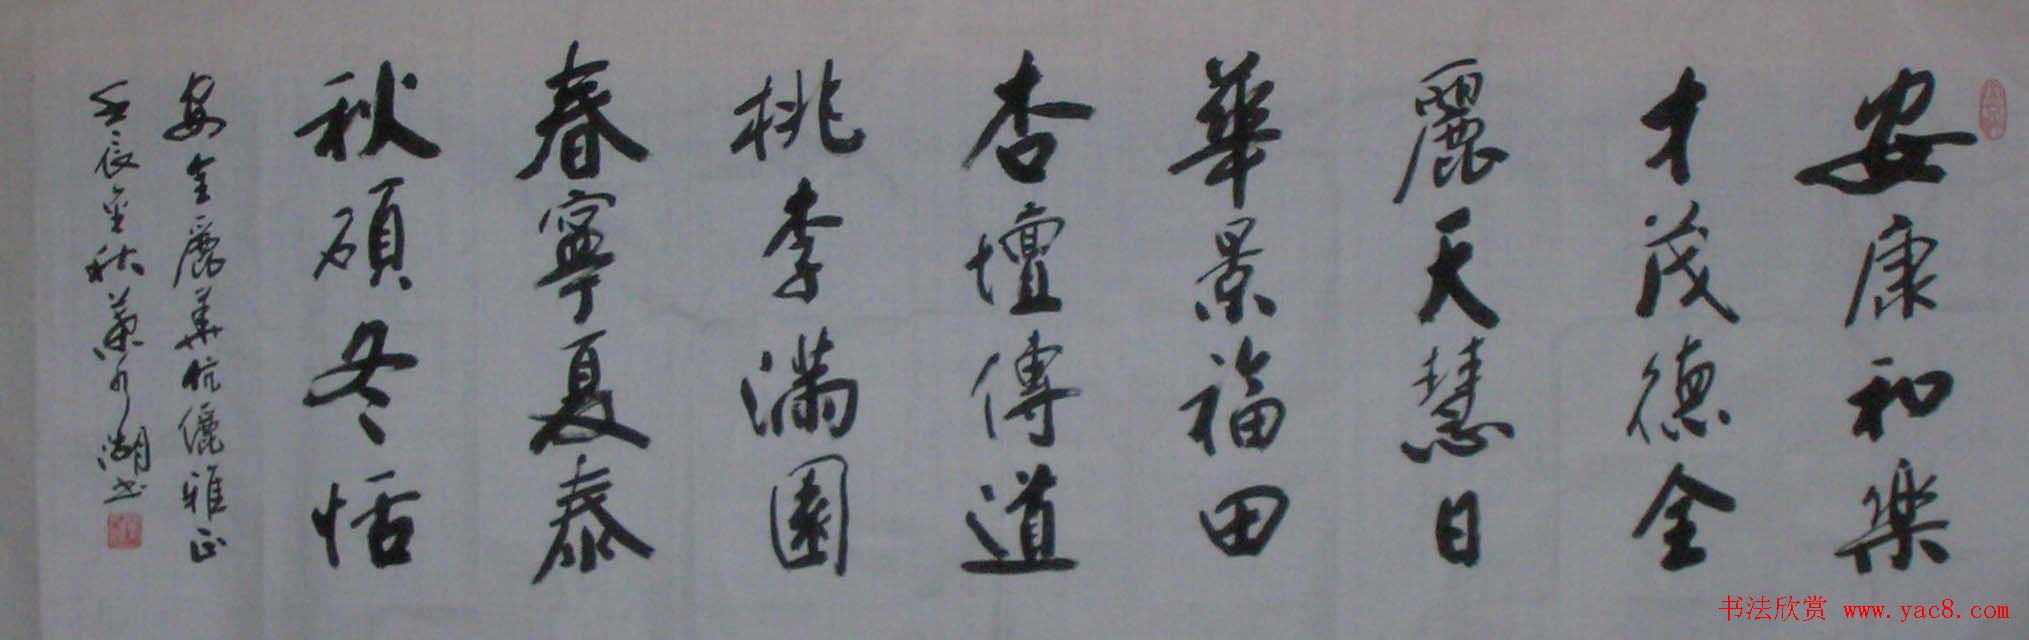 安康和樂
才茂德全
麗天慧日
華景福田
杏壇傳道
桃李滿園
春寧夏泰
秋碩冬恬
安全麗華伉儷雅正
壬辰金秋萧乃湖书
书法欣赏 www.yac8.com